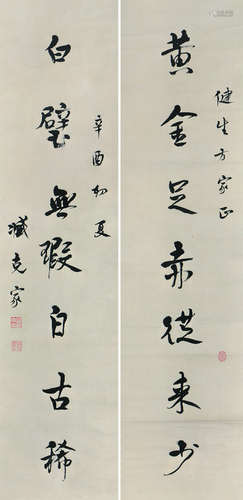 健生方家正
黄金足赤從來少
白璧無瑕自古稀
辛酉初夏
臧克家